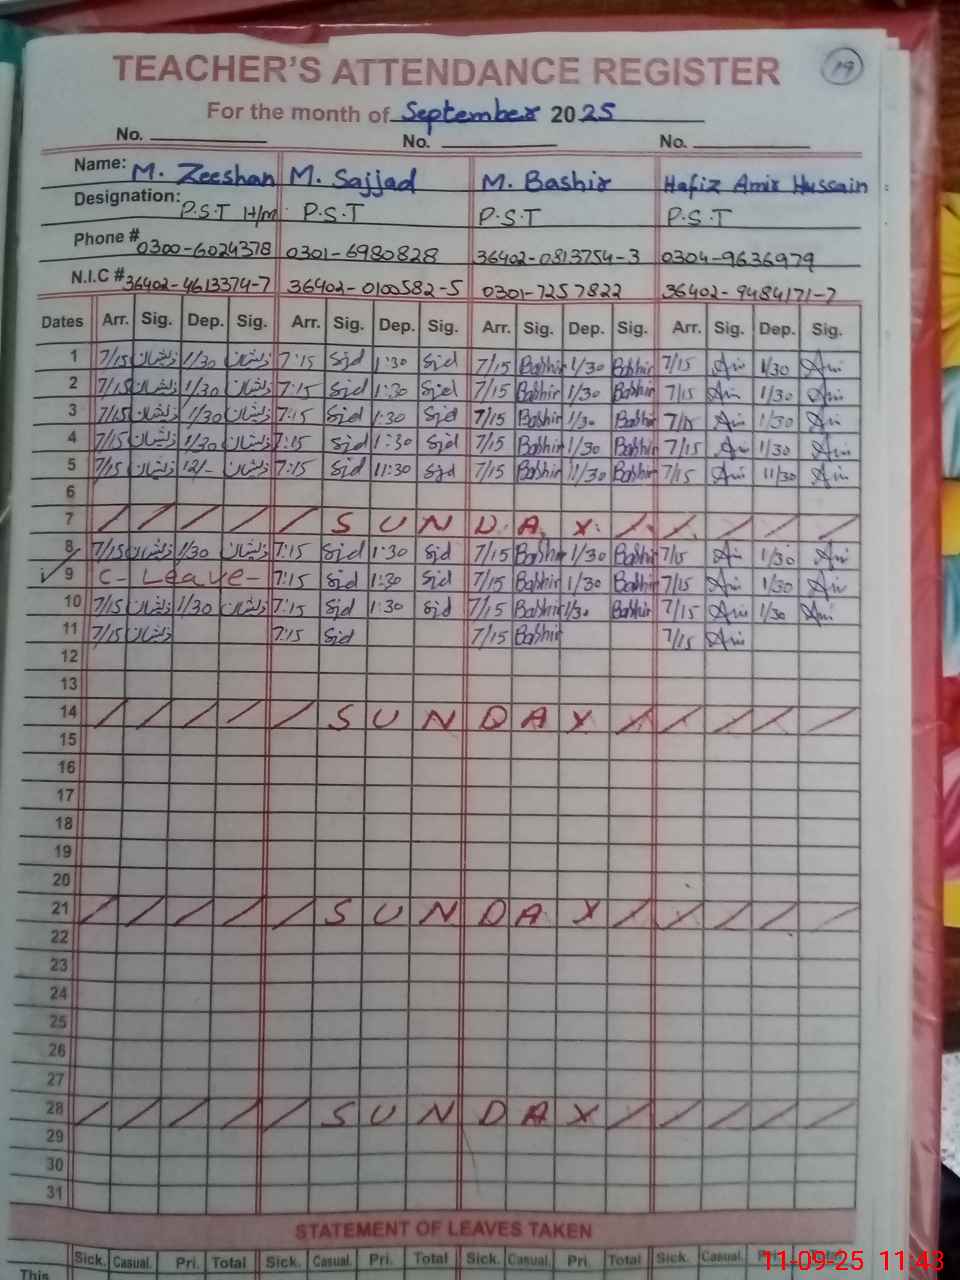 TEACHER'S ATTENDANCE REGISTER 19
For the month of September 2025
No. No. No.
Name: M. Zeeshan M. Sajjad M. Bashir Hafiz Amir Hussain
Designation: P.S.T H/m P.S.T P.S.T P.S.T
Phone # 0300-6024378 0301-6980828 36402-0813754-3 0304-9636979
N.I.C # 36402-4613374-7 36402-0100582-5 0301-7257822 36402-9484171-7
Dates Arr. Sig. Dep. Sig. Arr. Sig. Dep. Sig. Arr. Sig. Dep. Sig. Arr. Sig. Dep. Sig.
1 7/15 ذیشان 1/30 ذیشان 7:15 Sjd 1:30 Sjd 7/15 Bashir 1/30 Bashir 7/15 1/30
2 7/15 ذیشان 1/30 ذیشان 7:15 Sjd 1:30 Sjd 7/15 Bashir 1/30 Bashir 7/15 1/30
3 7/15 ذیشان 1/30 ذیشان 7:15 Sjd 1:30 Sjd 7/15 Bashir 1/30 Bashir 7/15 1/30
4 7/15 ذیشان 1/30 ذیشان 7:15 Sjd 1:30 Sjd 7/15 Bashir 1/30 Bashir 7/15 1/30
5 7/15 ذیشان 12/- ذیشان 7:15 Sjd 11:30 Sjd 7/15 Bashir 11/30 Bashir 7/15 11/30
6
7 S U N D A Y
8 7/15 ذیشان 1/30 ذیشان 7:15 Sjd 1:30 Sjd 7/15 Bashir 1/30 Bashir 7/15 1/30
9 C- Leave- 7:15 Sjd 1:30 Sjd 7/15 Bashir 1/30 Bashir 7/15 1/30
10 7/15 ذیشان 1/30 ذیشان 7:15 Sjd 1:30 Sjd 7/15 Bashir 1/30 Bashir 7/15 1/30
11 7/15 ذیشان 7:15 Sjd 7/15 Bashir 7/15
12
13
14 S U N D A Y
15
16
17
18
19
20
21 S U N D A Y
22
23
24
25
26
27
28 S U N D A Y
29
30
31
STATEMENT OF LEAVES TAKEN
Sick. Casual. Pri. Total Sick. Casual. Pri. Total Sick. Casual. Pri. Total Sick. Casual. Pri. Total
This
11-09-25 11:43